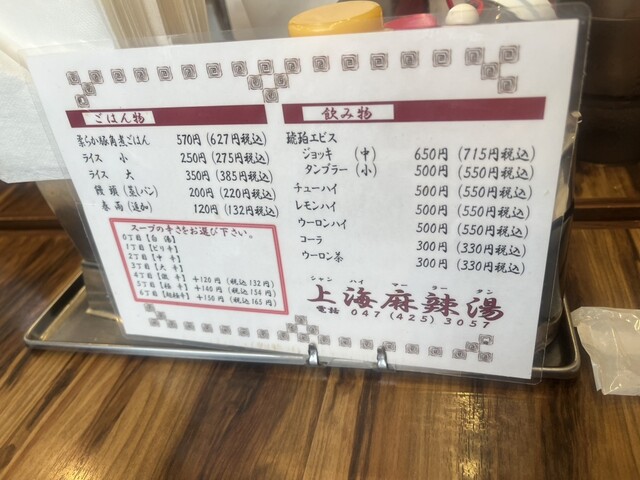 ごはん物
柔らか豚角煮ごはん 570円 (627円税込)
ライス 小 250円 (275円税込)
ライス 大 350円 (385円税込)
饅頭 (蒸パン) 200円 (220円税込)
春雨 (追加) 120円 (132円税込)
スープの辛さをお選び下さい。
0丁目【白 湯】
1丁目【ピリ辛】
2丁目【中 辛】
3丁目【大 辛】
4丁目【激 辛】 +120円 (税込132円)
5丁目【極 辛】 +140円 (税込154円)
6丁目【超極辛】 +150円 (税込165円)
飲み物
琥珀エビス
ジョッキ (中) 650円 (715円税込)
タンブラー (小) 500円 (550円税込)
チューハイ 500円 (550円税込)
レモンハイ 500円 (550円税込)
ウーロンハイ 500円 (550円税込)
コーラ 300円 (330円税込)
ウーロン茶 300円 (330円税込)
シャン ハイ マー ラー タン
上海麻辣湯
電話 047 (425) 3057